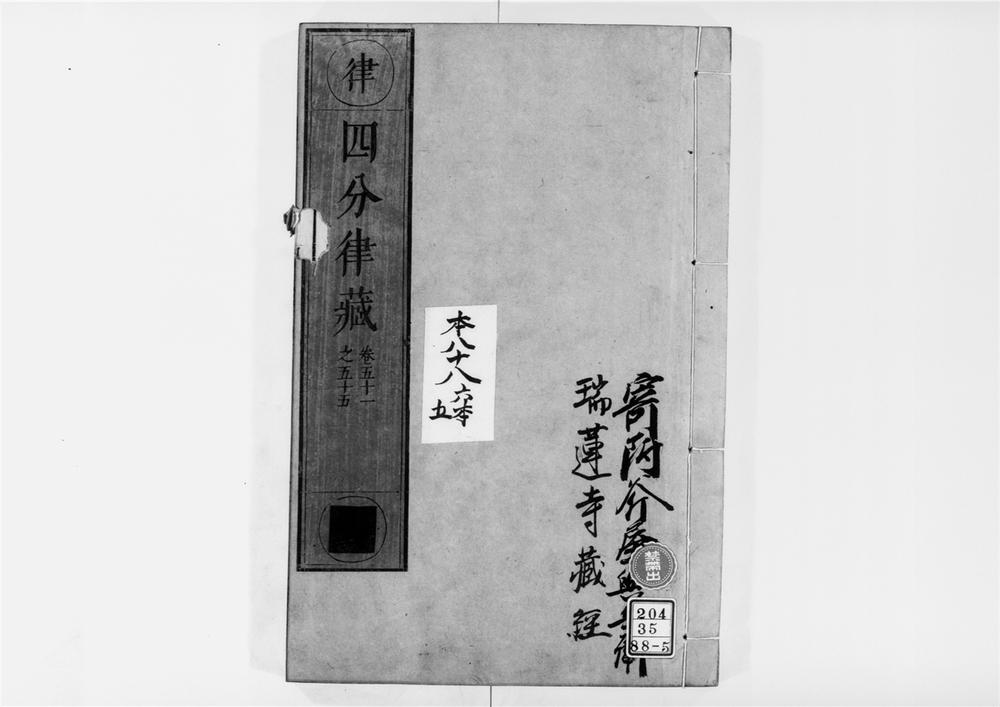 寄附 屋與兵衛
瑞蓮寺藏經
禁帶出
204
35
88-5
本八十八
六本
五
律
四分律藏
卷五十一
之五十五